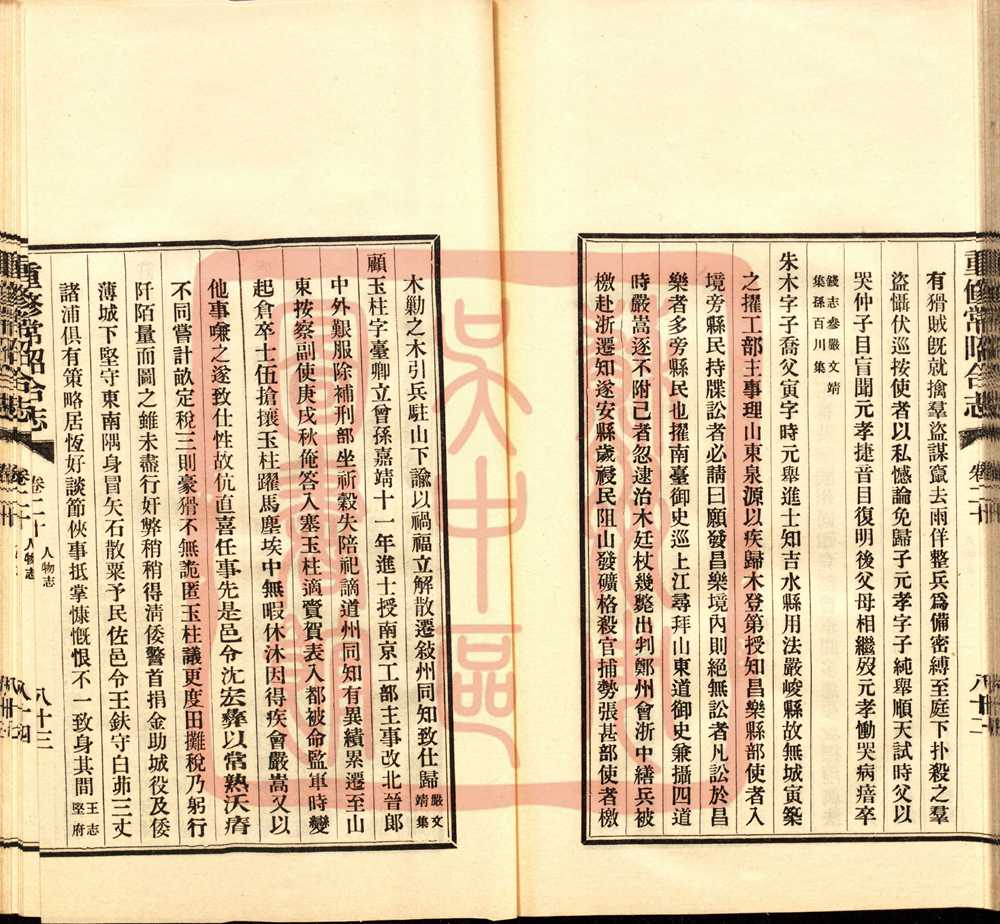 重修常昭合志
卷二十
八十二
有猾賊旣就擒羣盜謀竄去雨佯整兵爲備密縛至庭下扑殺之羣
盜懾伏巡按使者以私憾論免歸子元孝字子純舉順天試時父以
哭仲子目盲聞元孝捷音目復明後父母相繼歿元孝慟哭病瘖卒
錢志叅嚴文靖
集孫百川集
朱木字子喬父寅字時元舉進士知吉水縣用法嚴峻縣故無城寅築
之擢工部主事理山東泉源以疾歸木登第授知昌樂縣部使者入
境旁縣民持牒訟者必請曰願發昌樂境內則絕無訟者凡訟於昌
樂者多旁縣民也擢南臺御史巡上江尋拜山東道御史兼攝四道
時嚴嵩逐不附己者忽逮治木廷杖幾斃出判鄭州會浙中繕兵被
檄赴浙遷知遂安縣歲祲民阻山發礦格殺官捕勢張甚部使者檄
木勦之木引兵駐山下諭以禍福立解散遷敍州同知致仕歸
嚴文
靖集
顧玉柱字臺卿立曾孫嘉靖十一年進士授南京工部主事改北晉郎
中外艱服除補刑部坐祈穀失陪祀謫道州同知有異績累遷至山
東按察副使庚戌秋俺答入塞玉柱適賫賀表入都被命監軍時變
起倉卒士伍搶攘玉柱躍馬塵埃中無暇休沐因得疾會嚴嵩又以
他事嗛之遂致仕性故伉直喜任事先是邑令沈宏彝以常熟沃瘠
不同嘗計畝定稅三則豪猾不無詭匿玉柱議更度田攤稅乃躬行
阡陌量而圖之雖未盡行奸弊稍稍得淸倭警首捐金助城役及倭
薄城下堅守東南隅身冒矢石散粟予民佐邑令王鈇守白茆三丈
諸浦俱有策略居恆好談節俠事抵掌慷慨恨不一致身其間
王志
堅府
重修常昭合志
卷二十
人物志
八十三